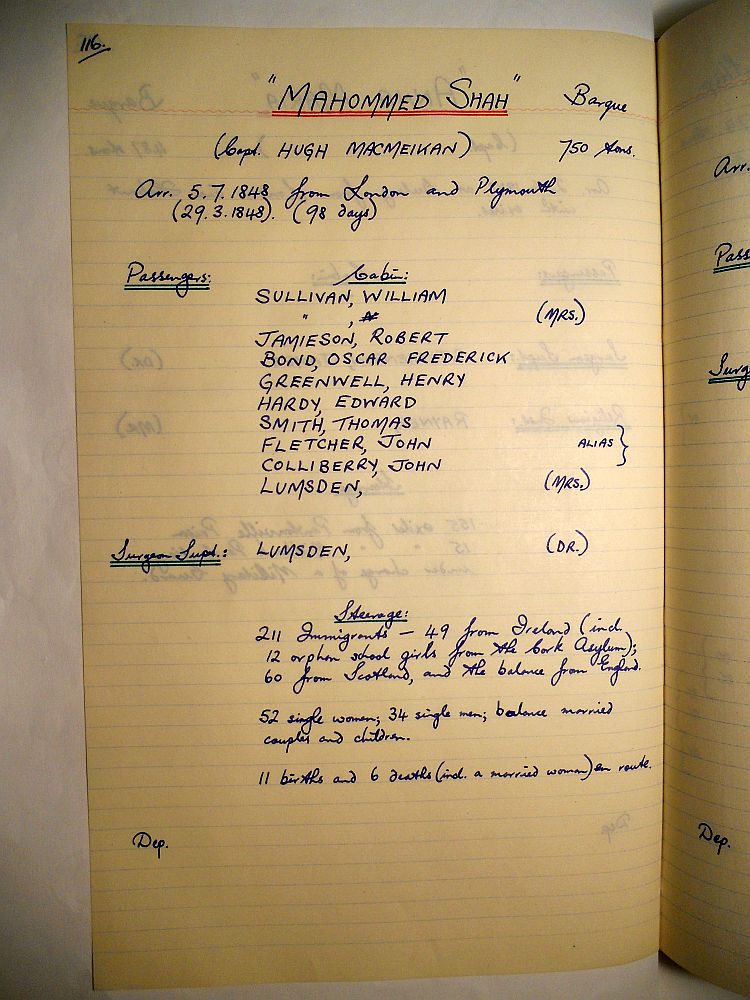 116.
"MAHOMMED SHAH" Barque
(Capt. HUGH MACMEIKAN) 750 tons.
Arr. 5.7.1848 from London and Plymouth
(29.3.1848). (98 days)
Passengers: Cabin:
SULLIVAN, WILLIAM
" , (MRS.)
JAMIESON, ROBERT
BOND, OSCAR FREDERICK
GREENWELL, HENRY
HARDY, EDWARD
SMITH, THOMAS
FLETCHER, JOHN ALIAS }
COLLIBERRY, JOHN
LUMSDEN, (MRS.)
Surgeon Supt.: LUMSDEN, (DR.)
Steerage:
211 Immigrants — 49 from Ireland (incl.
12 orphan school girls from the Cork Asylum);
60 from Scotland, and the balance from England.
52 single women; 34 single men; balance married
couples and children.
11 births and 6 deaths (incl. a married woman) en route.
Dep.
Arr.
Pass
Surg
Dep.